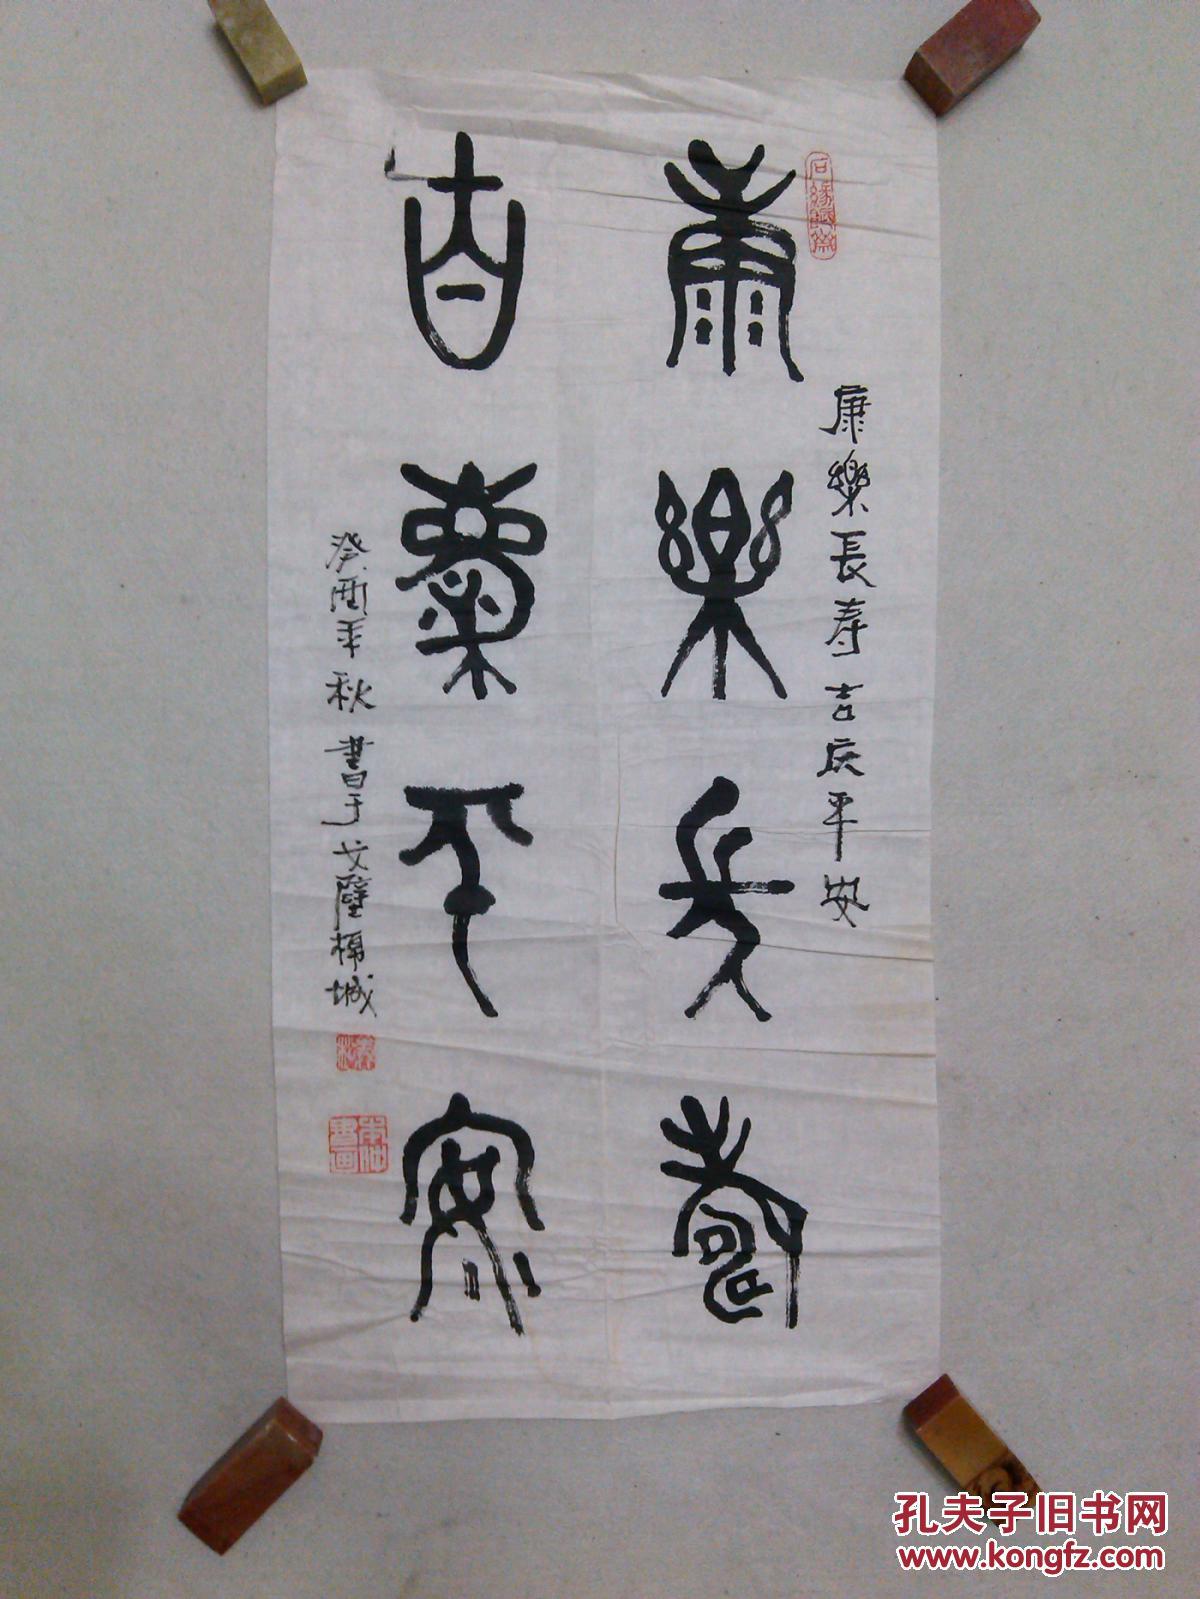 康樂長寿
吉慶平安
康樂長寿吉庆平安
癸酉年秋書于戈壁棉城
孔夫子旧书网
www.kongfz.com